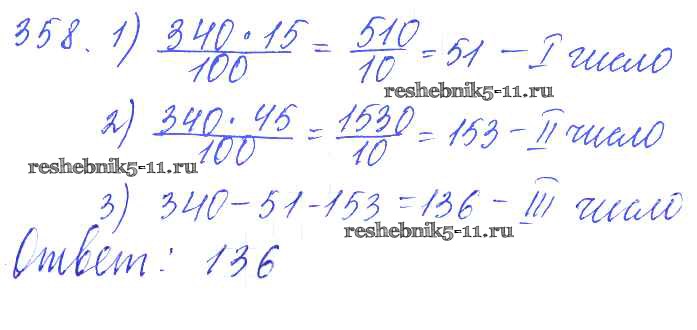 358. 1) 340·15/100 = 510/10 = 51 – I число
reshebnik5-11.ru
2) 340·45/100 = 1530/10 = 153 – II число
reshebnik5-11.ru
3) 340 – 51 – 153 = 136 – III число
reshebnik5-11.ru
Ответ: 136